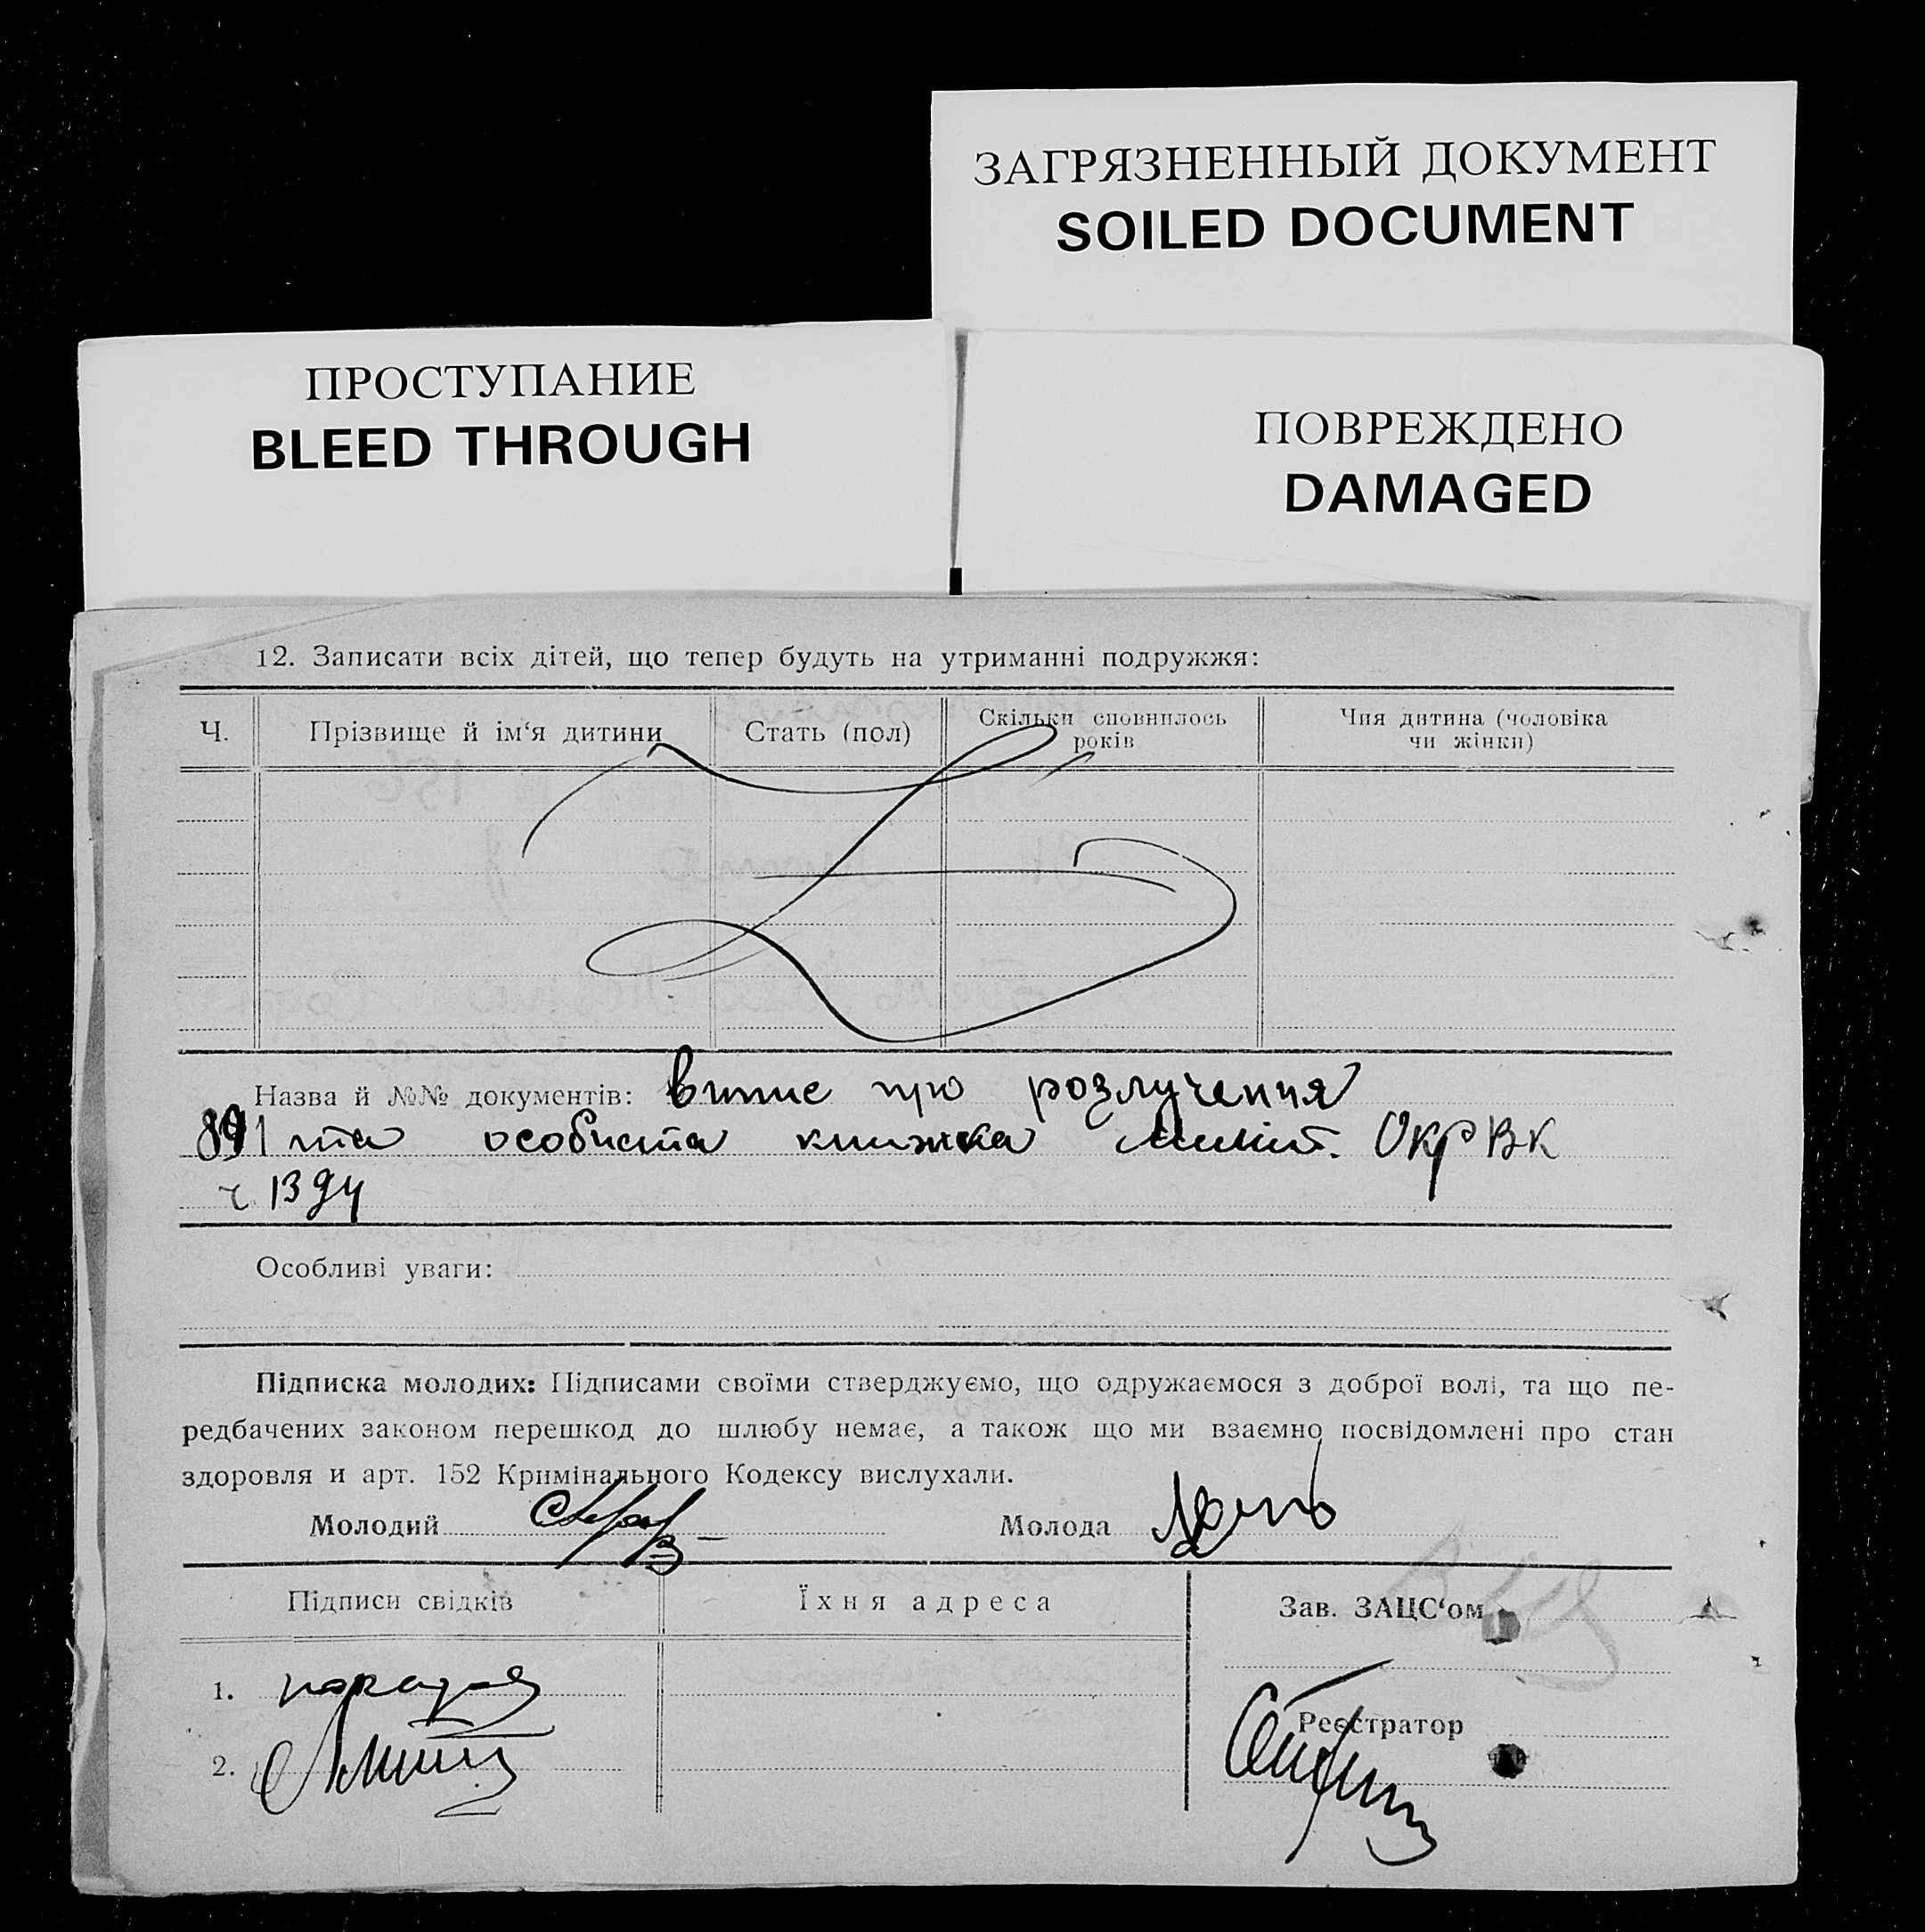 ЗАГРЯЗНЕННЫЙ ДОКУМЕНТ
SOILED DOCUMENT
ПРОСТУПАНИЕ
BLEED THROUGH
ПОВРЕЖДЕНО
DAMAGED
12. Записати всіх дітей, що тепер будуть на утриманні подружжя:
Ч. Прізвище й ім‘я дитини Стать (пол) Скільки сповнилось років Чия дитина (чоловіка чи жінки)
Назва й №№ документів: витис про розлучення
891 та особиста книжка Міліт. ОкрВК
ч 1394
Особливі уваги:
Підписка молодих: Підписами своїми стверджуємо, що одружаємося з доброї волі, та що пе-
редбачених законом перешкод до шлюбу немає, а також що ми взаємно посвідомлені про стан
здоровля и арт. 152 Кримінального Кодексу вислухали.
Молодий Молода
Підписи свідків Їхня адреса Зав. ЗАЦС‘ом
1.
Реєстратор
2.